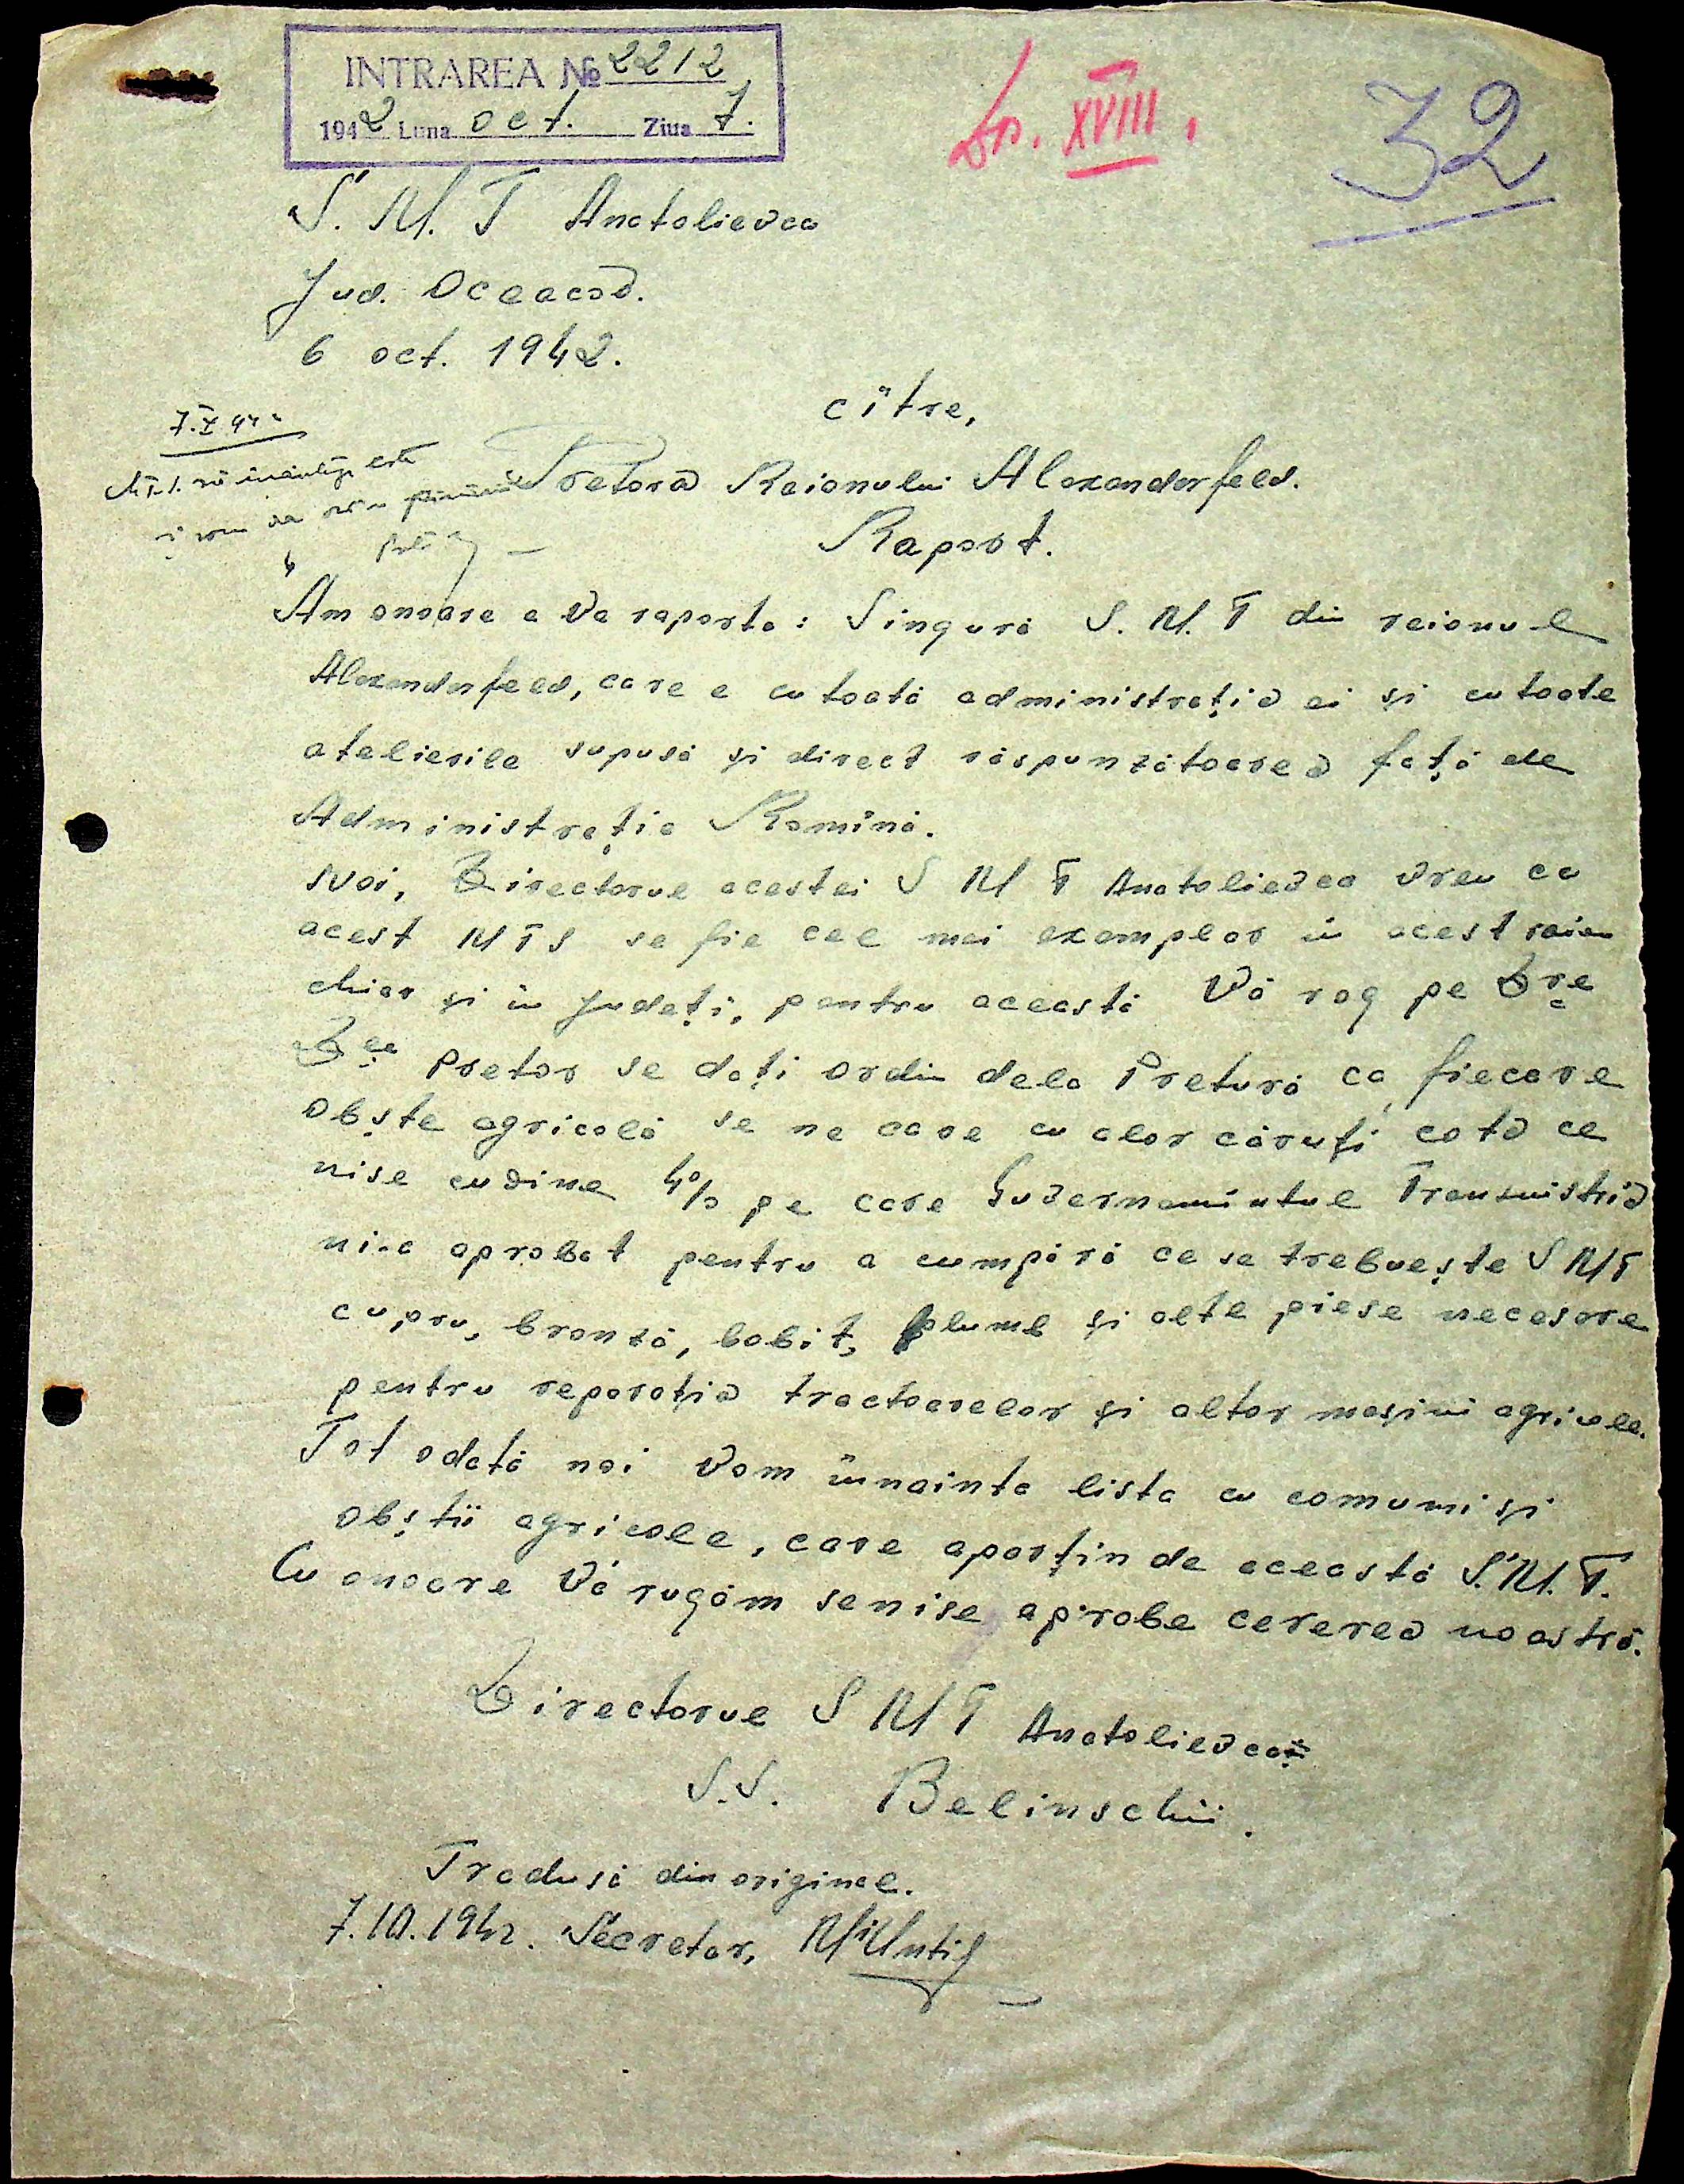 INTRAREA № 2212
1942 Luna oct. Ziua 7.
Ds. XVIII.
32
S. M. T Anatolievca
Jud. Oceacov.
6 oct. 1942.
cître,
7.X 942
Pretora Raionului Alexanderfeld.
Raport.
Am onoare a Va raporta: Singura S. M. T din raionul
Alexanderfeld, care e cu toată administrația ei și cu toate
atelierile supusă și direct răspunzătoarea față de
Administrația Romînă.
Noi, Directorul acestei S M T Anatolievca vreu ca
acest MTS se fie cel mai exemplar în acest raion
chiar și în Județi, pentru aceasta Vă rog pe Dre
Dle Pretor se dați ordin dela Pretură ca fiecare
Obște agricolă se ne care cu alor căruți cota ce
nise cuvine 4% pe care Guvernamîntul Transnistria
ni-a aprobat pentru a cumpără ce se trebuește SMT
cupru, bronză, babit, plumb și alte piese necesare
pentru reparația tractoarelor și altor mașini agricole.
Tot odată noi Vom înnainta lista cu comuni și
obștii agricole, care aparțin de această S.M.T.
Cu onoare Vă rugăm senise aprobe cererea noastră.
Directorul S M T Anatolievca
S.S. Belinschii.
Tradusă din original.
7.10.1942. Secretar,